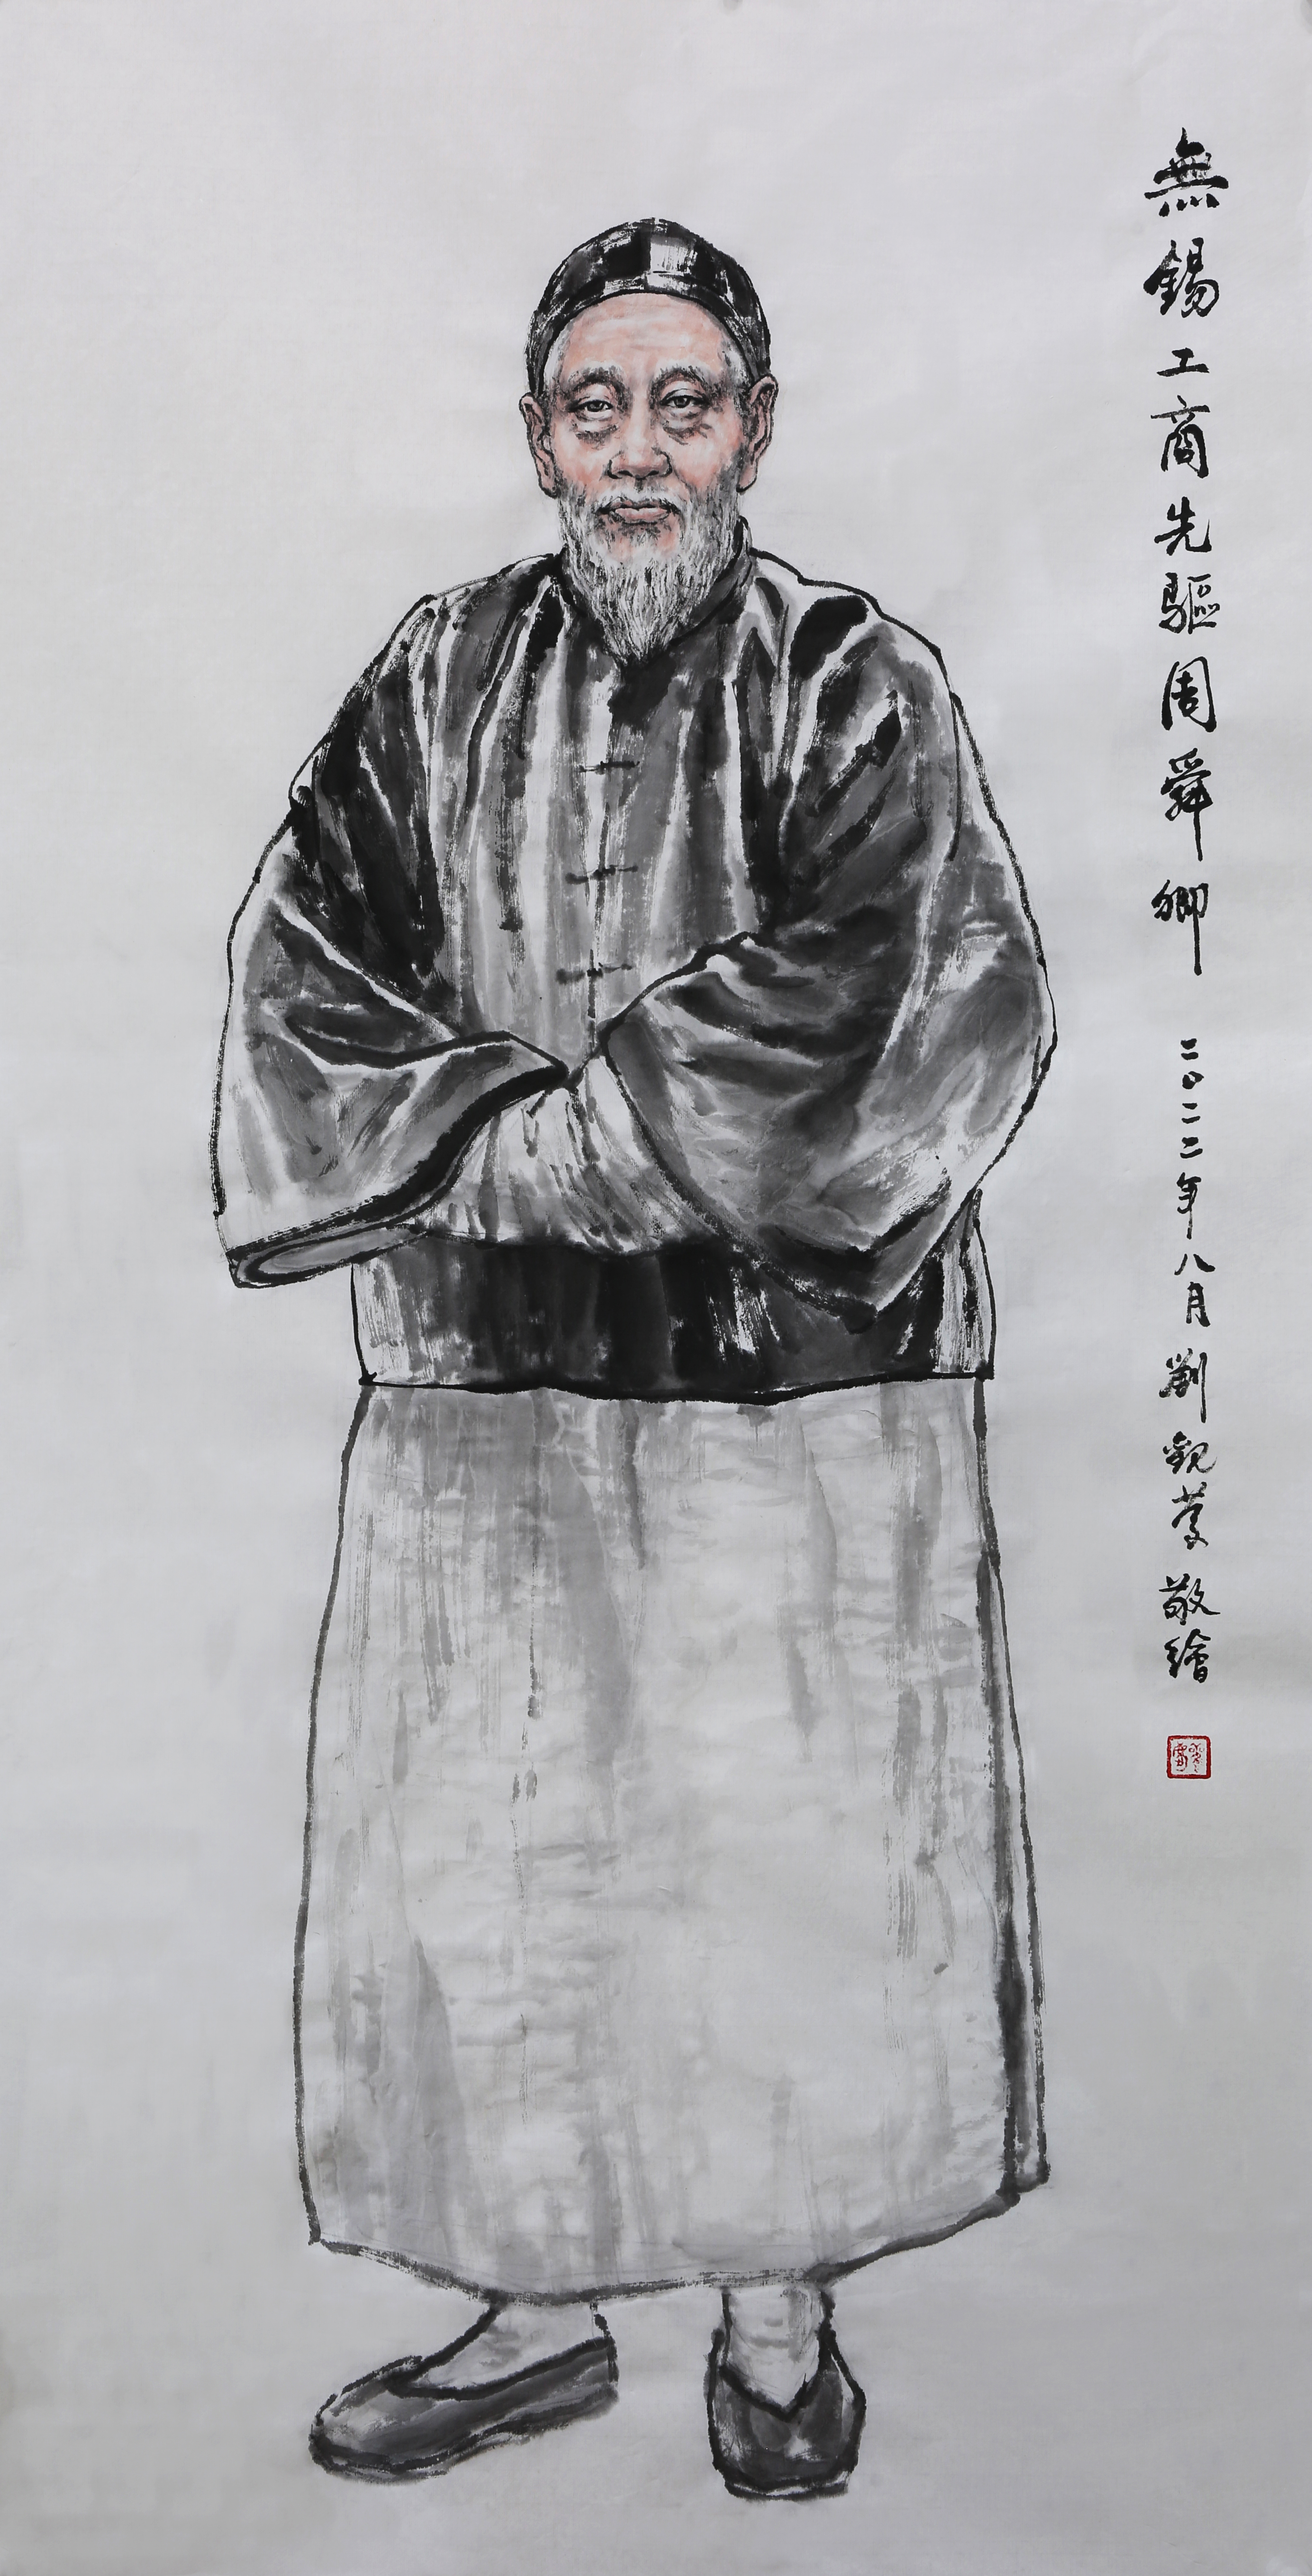 無錫工商先驅周舜卿 二〇二二年八月劉觀蒙敬繪